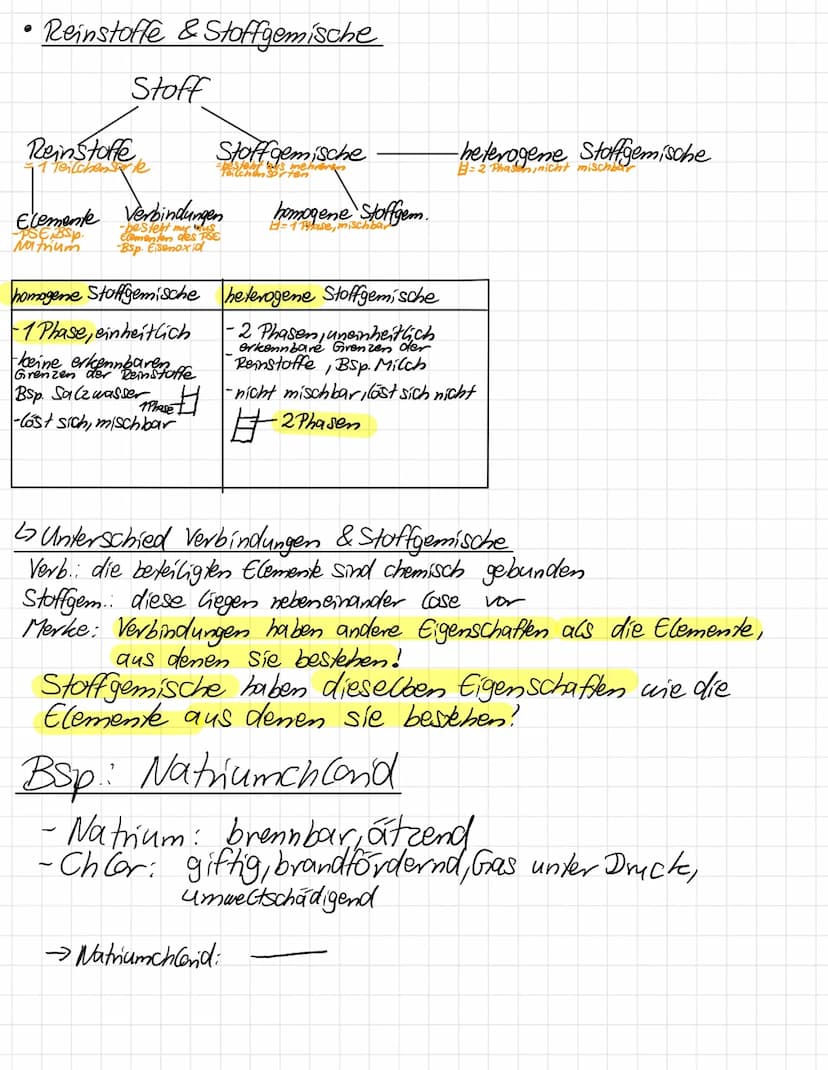 • Reinstoffe & Stoffgemische
Stoff
Reinstoffe
= 1 Teilchensorte
Stoffgemische
=besteht aus mehreren
Teilchensorten
heterogene Stoffgemische
= 2 Phasen, nicht mischbar
Elemente
-PSE, Bsp.
Natrium
Verbindungen
-besteht nur aus
Elementen des PSE
-Bsp. Eisenoxid
homogene Stoffgem.
= 1 Phase, mischbar
homogene Stoffgemische
-1 Phase, einheitlich
-keine erkennbaren
Grenzen der Reinstoffe
Bsp. Salzwasser
1 Phase
-löst sich, mischbar
heterogene Stoffgemische
- 2 Phasen, uneinheitlich
- erkennbare Grenzen der
Reinstoffe, Bsp. Milch
-nicht mischbar, löst sich nicht
- 2 Phasen
↳ Unterschied Verbindungen & Stoffgemische
Verb.: die beteiligten Elemente sind chemisch gebunden
Stoffgem.: diese liegen nebeneinander lose vor
Merke: Verbindungen haben andere Eigenschaften als die Elemente,
aus denen sie bestehen!
Stoffgemische haben dieselben Eigenschaften wie die
Elemente aus denen sie bestehen!
Bsp.: Natriumchlorid
- Natrium: brennbar, ätzend
- Chlor: giftig, brandfördernd, Gas unter Druck,
umweltschädigend
→ Natriumchlorid: —